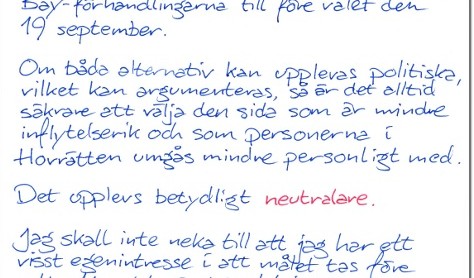 Bay-förhandlingarna till före valet den
19 september.
Om båda alternativ kan upplevas politiska,
vilket kan argumenteras, så är det alltid
säkrare att välja den sida som är mindre
inflytelserik och som personerna i
Hovrätten umgås mindre personligt med.
Det upplevs betydligt neutralare.
Jag skall inte neka till att jag har ett
visst egenintresse i att målet tas före